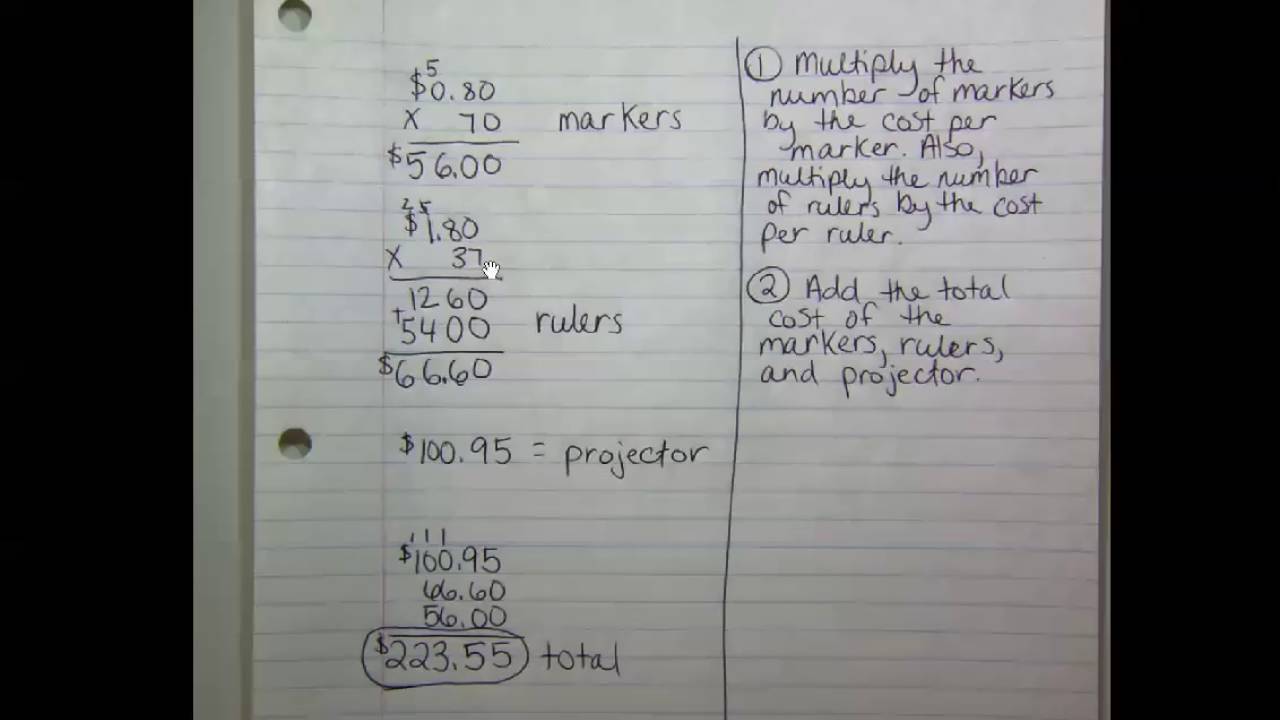 5
$0.80
x 70 markers
$56.00
25
$1.80
x 37
1260
+5400 rulers
$66.60
$100.95 = projector
111
$100.95
66.60
56.00
$223.55 total
① Multiply the
number of markers
by the cost per
marker. Also,
multiply the number
of rulers by the cost
per ruler.
② Add the total
cost of the
markers, rulers,
and projector.